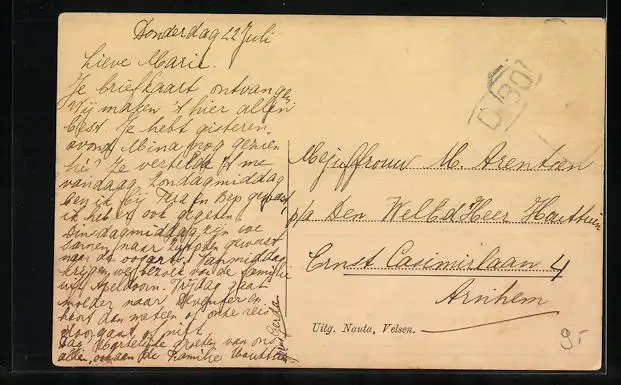 Donderdag 22 Juli
Lieve Marie.
Je briefkaart ontvangen,
Wij maken 't hier allen
best. Je hebt gisteren
avond Mina nog gezien
hè? Ze vertelde 't me
vandaag. Zondagmiddag
ben ik bij en Bep geweest
ik heb er ook gegeten.
Dinsdagmiddag zijn we
samen naar geweest
naar de . Vanmiddag
krijgen we bezoek van de familie
uit Apeldoorn. Vrijdag gaat
moeder naar en
hoort dan meteen of onze reis
doorgaat of niet.
Dag, Hartelijke groeten van ons
allen, ook aan de Familie Houttuin
Mejuffrouw M. Arentsen
p/a Den WelEd Heer Houttuin
Ernst Casimirlaan 4
Arnhem
Uitg. Nauta, Velsen.
9.-